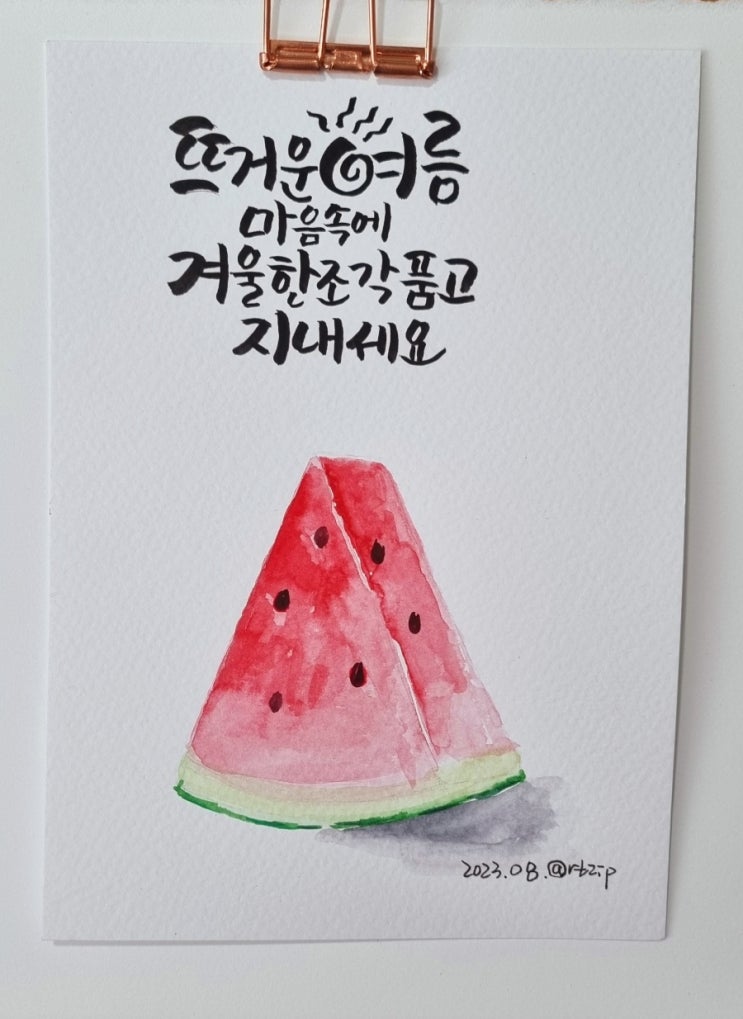 뜨거운 여름
마음속에
겨울 한조각 품고
지내세요
2023.08.@rbzip